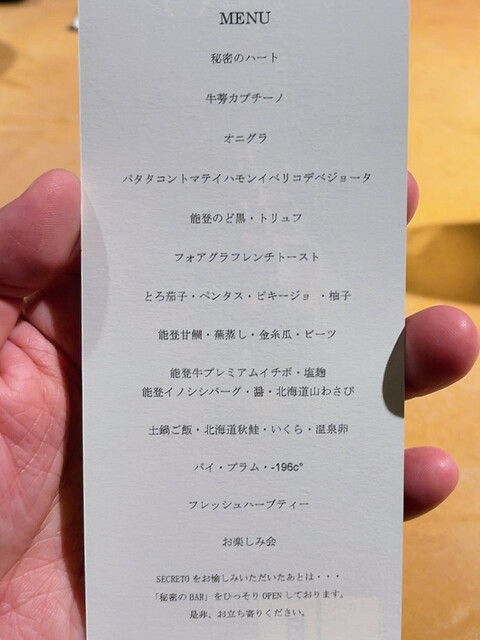 MENU
秘密のハート
牛蒡カプチーノ
オニグラ
パタタコントマテイハモンイベリコデベジョータ
能登のど黒・トリュフ
フォアグラフレンチトースト
とろ茄子・ペンタス・ピキージョ ・柚子
能登甘鯛・蕪蒸し・金糸瓜・ビーツ
能登牛プレミアムイチボ・塩麹
能登イノシシバーグ・醤・北海道山わさび
土鍋ご飯・北海道秋鮭・いくら・温泉卵
パイ・プラム・-196c°
フレッシュハーブティー
お楽しみ会
SECRETO をお愉しみいただいたあとは・・・
「秘密のBAR」をひっそり OPEN しております。
是非、お立ち寄りください。